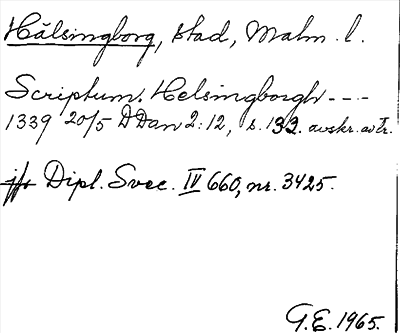 Hälsingborg, stad, Malm. l.
Scriptum. Helsingborgh ----
1339 20/5 DDan 2:12, s. 132. avskr. av tr.
jfr Dipl. Svec. IV 660, nr. 3425.
G.E. 1965.